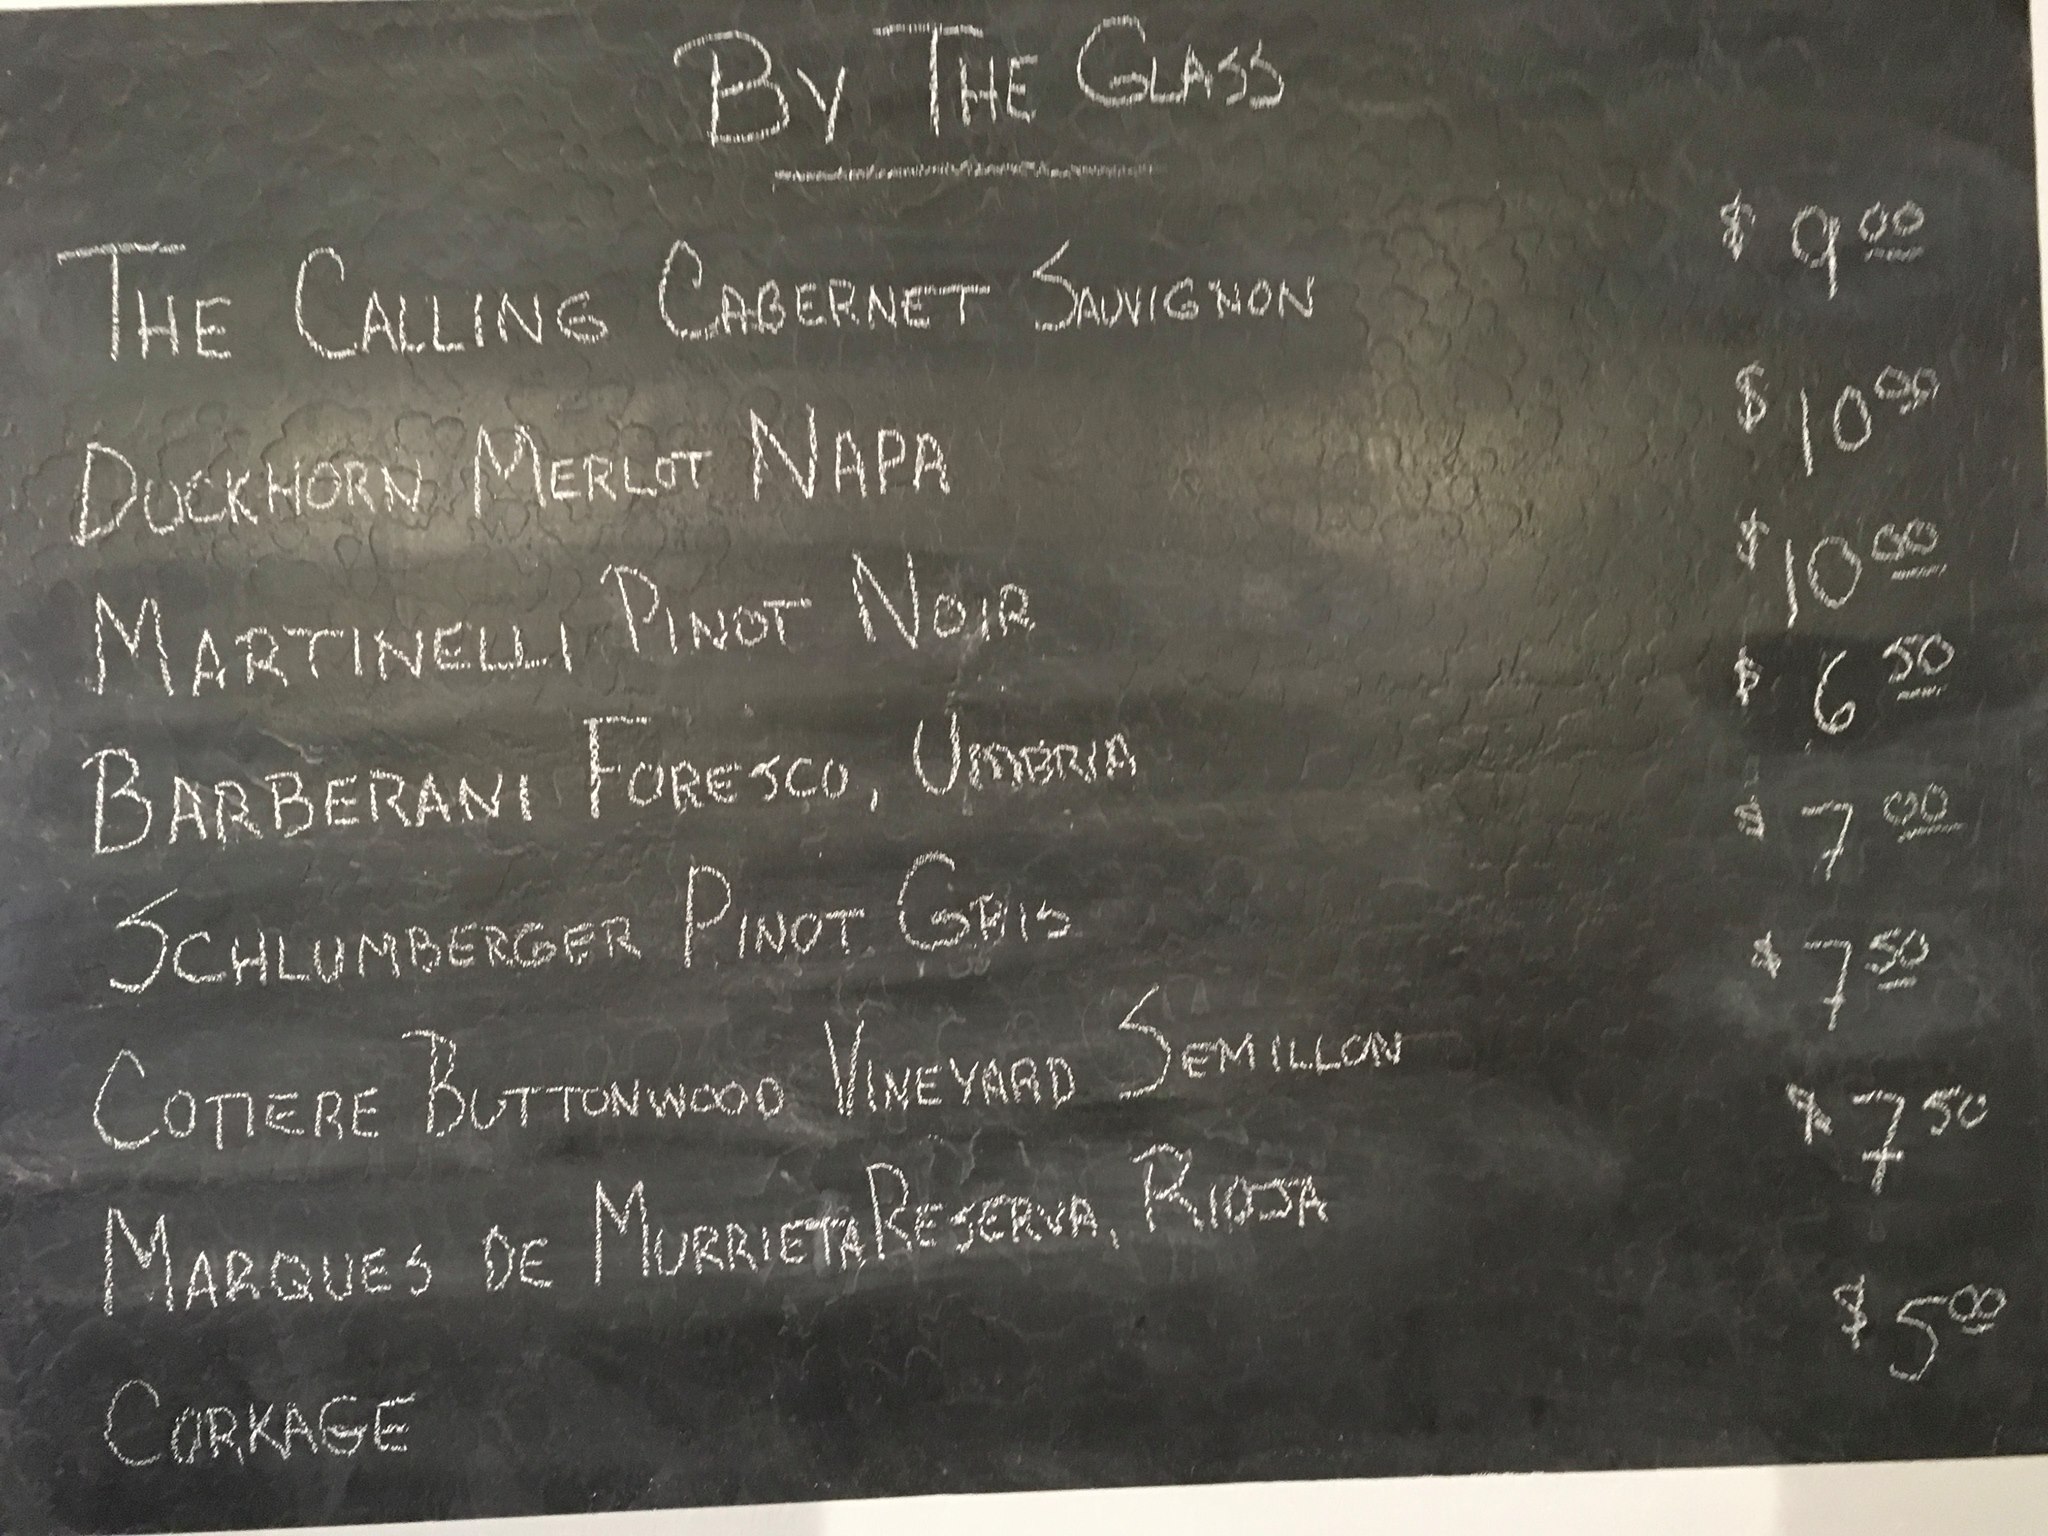 By The Glass
The Calling Cabernet Sauvignon $9.00
Duckhorn Merlot Napa $10.00
Martinelli Pinot Noir $10.00
Barberani Foresco, Umbria $6.50
Schlumberger Pinot Gris $7.00
Cotiere Buttonwood Vineyard Semillon $7.50
Marques de Murrieta Reserva, Rioja $7.50
Corkage $5.00